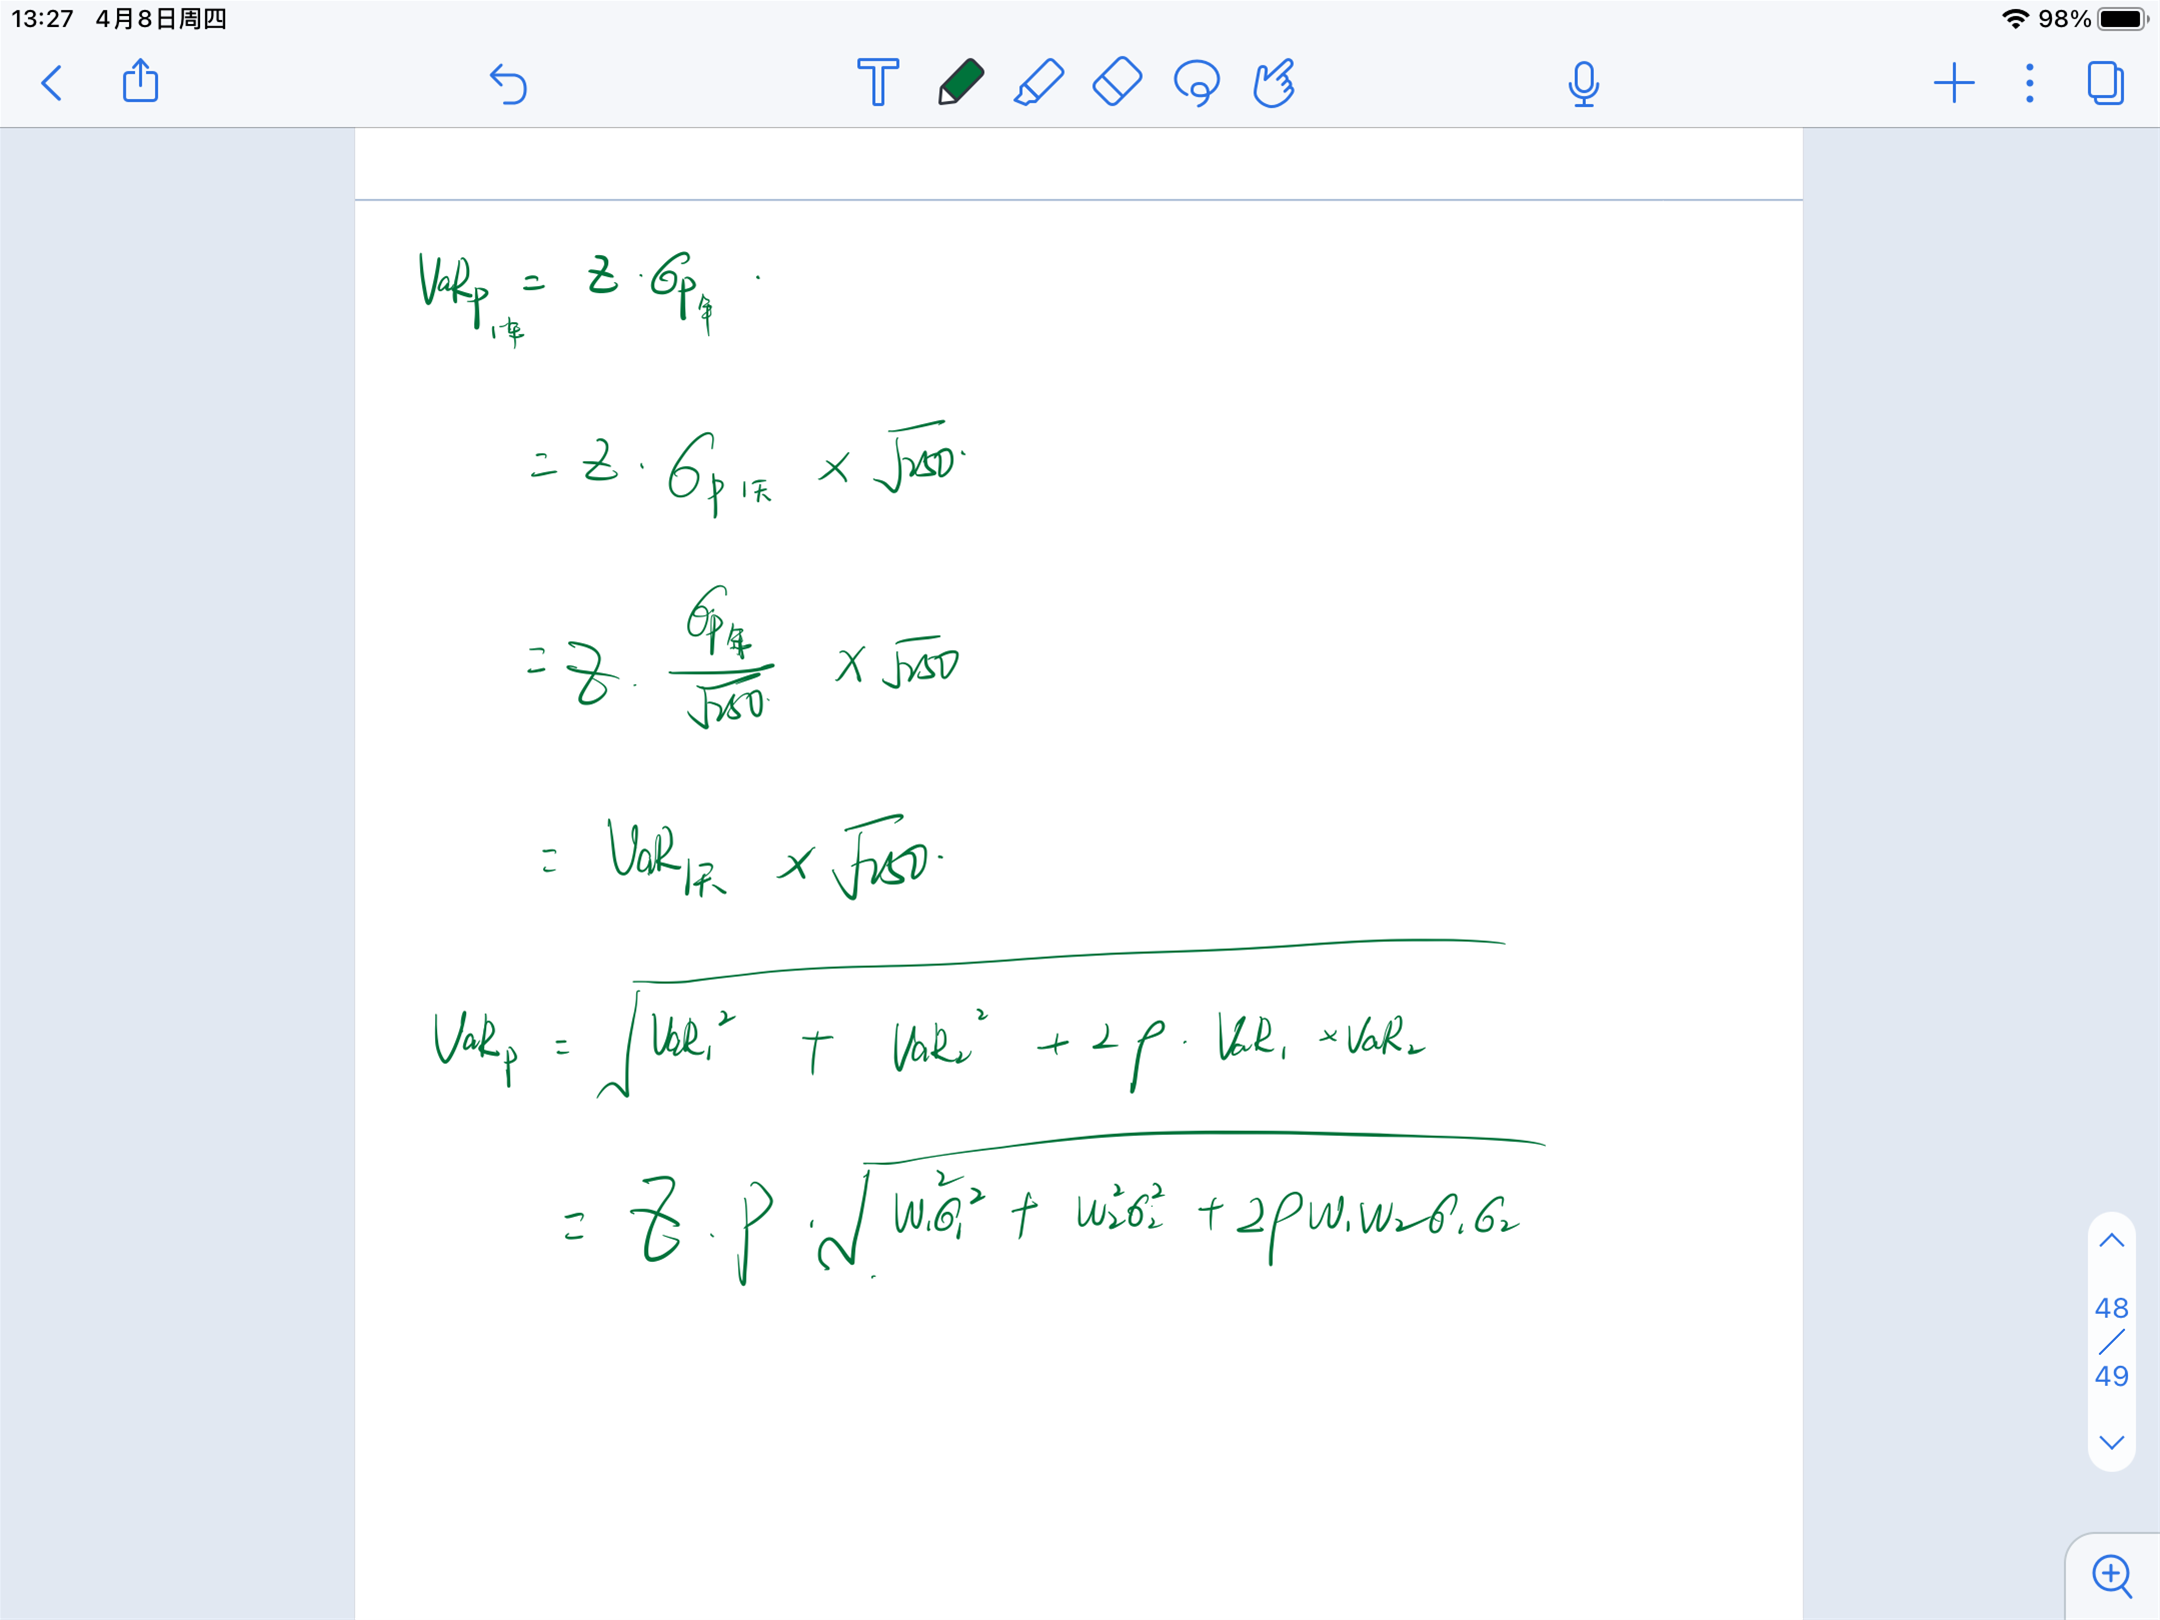 13:27 4月8日周四 98%
VaR_P 1年 = Z · σ_P年 ·
= Z · σ_P 1天 × √250.
= Z · σ_P年 / √250 × √250
= VaR_1天 × √250.
VaR_P = √(VaR₁² + VaR₂² + 2ρ · VaR₁ × VaR₂)
= Z · P · √(W₁²σ₁² + W₂²σ₂² + 2ρW₁W₂σ₁σ₂)
48
/
49